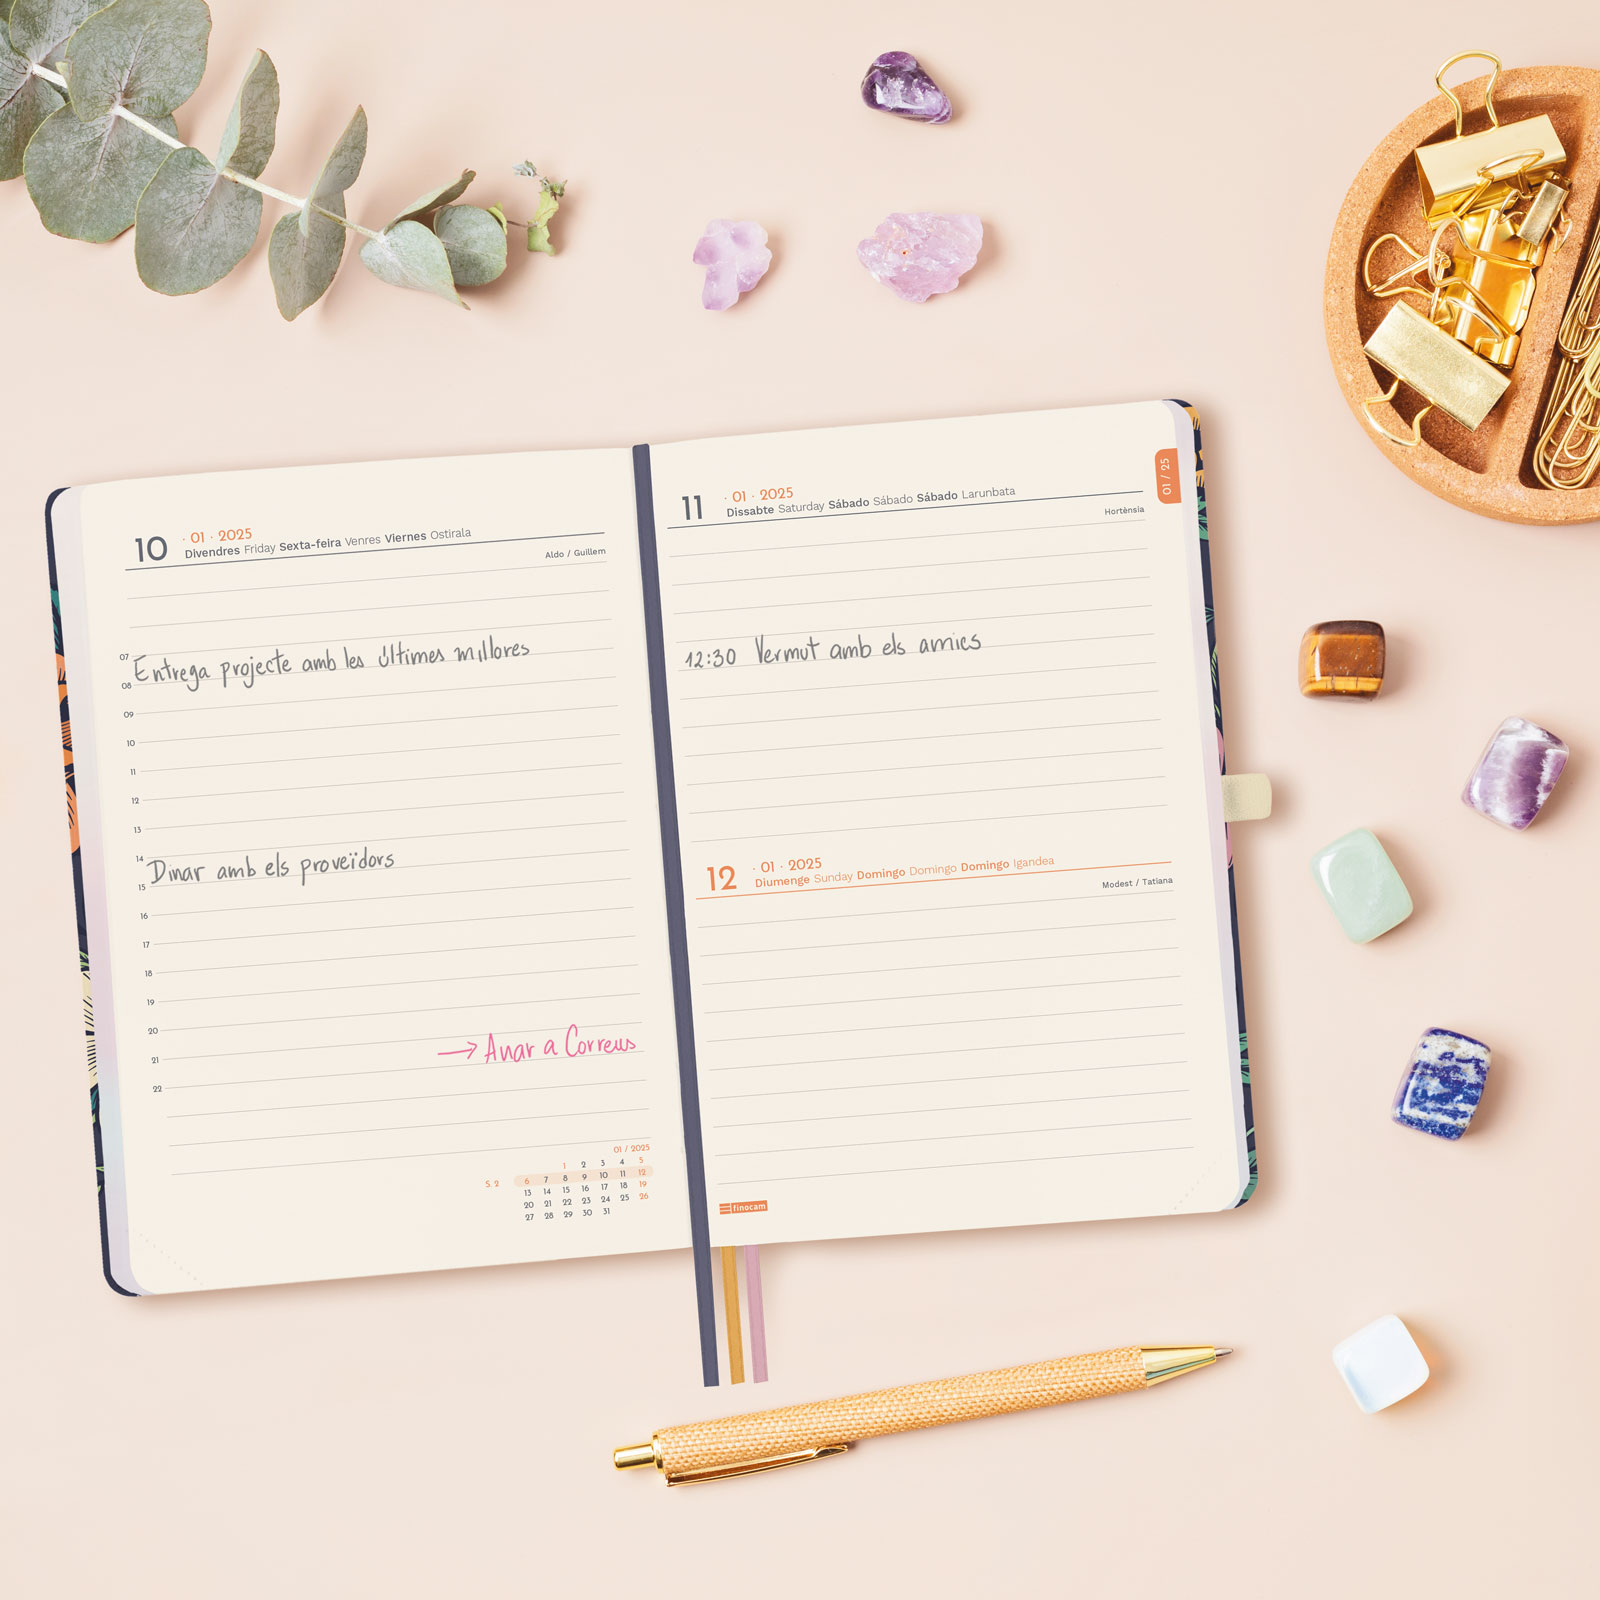 10 · 01 · 2025
Divendres Friday Sexta-feira Venres Viernes Ostirala
Aldo / Guillem
07
Entrega projecte amb les últimes millores
08
09
10
11
12
13
14
Dinar amb els proveïdors
15
16
17
18
19
20
→ Anar a Correus
21
22
01 / 2025
1 2 3 4 5
S. 2 6 7 8 9 10 11 12
13 14 15 16 17 18 19
20 21 22 23 24 25 26
27 28 29 30 31
11 · 01 · 2025
Dissabte Saturday Sábado Sábado Sábado Larunbata
01 / 25
Hortènsia
12:30 Vermut amb els amics
12 · 01 · 2025
Diumenge Sunday Domingo Domingo Domingo Igandea
Modest / Tatiana
finocam